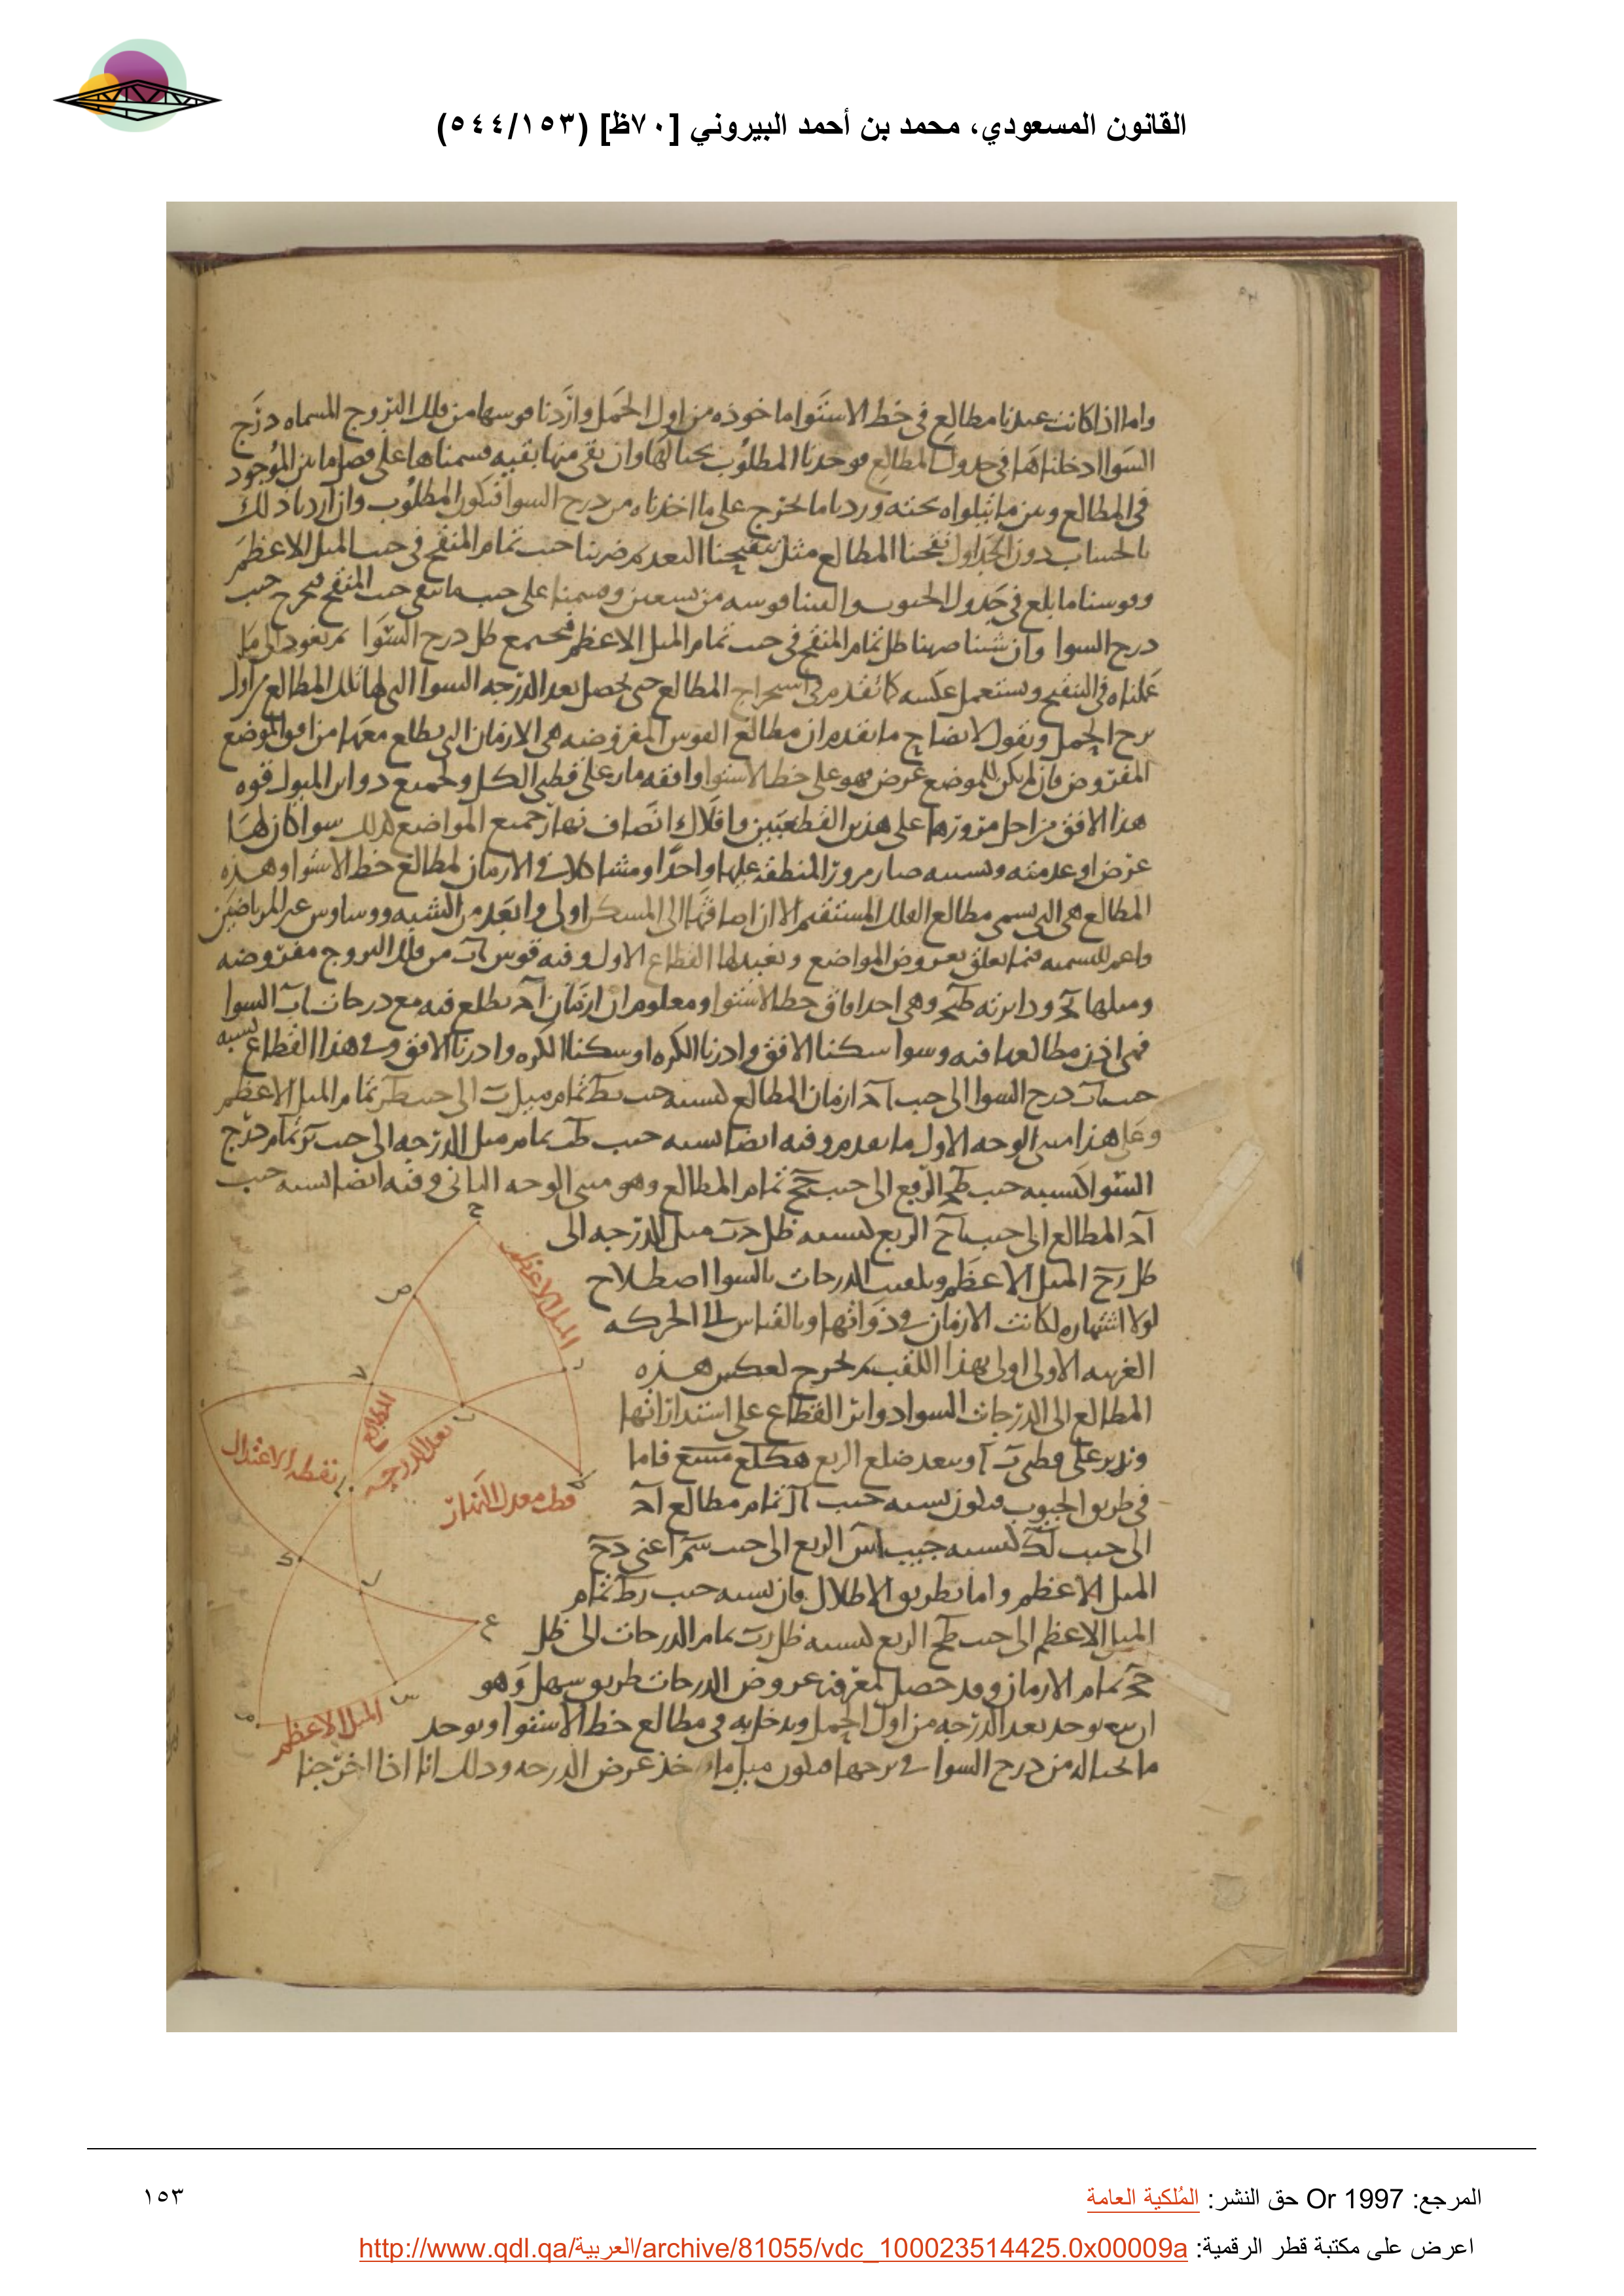 القانون المسعودي، محمد بن أحمد البيروني [٧٠ظ] (٥٤٤/١٥٣)
واما اذا كانت عندنا مطالع في خط الاستوا ماخوذه من اول الحمل واردنا قوسها من فلك البروج المسماه درج
السوا ادخلناها في جدول المطالع فوجدنا المطلوب بحيالها وان بقى منها بقيه قسمناها على فصل ما بين الموجود
في المطالع وبين ما يتلواه تحته وزدنا ما يخرج على ما اخذناه من درج السوا فيكون المطلوب وان اردنا ذلك
بالحساب دون الجداول نقحنا المطالع مثل تنقيحنا البعد ثم ضربنا جيب تمام المنقح في جيب الميل الاعظم
وقوسنا ما بلغ في جدول الجيوب والقينا قوسه من تسعين وقسمنا على جيب ما بقى جيب المنقح فيخرج جيب
درج السوا وان شينا ضربنا ظل تمام المنقح في جيب تمام الميل الاعظم فيجتمع ظل درج السوا ثم نعود الى ما
عملناه في التنقيح ونستعمل عكسه كما تقدم في استخراج المطالع حتى يحصل بعد الدرجه السوا التي لها تلك المطالع من اول
برج الحمل ونقول لايضاح ما تقدم ان مطالع القوس المفروضه هي الازمان التي يطلع معها من افق الموضع
المفروض فان لم يكن للموضع عرض فهو على خط الاستوا وافقه مار على قطبي الكل ولجميع دواير الميول قوه
هذا الافق من اجل مرورها على هذين القطبين وافلاك انصاف نهار جميع المواضع كذلك سوا كان لها
عرض او عدمته وبسببه صار مرور المنطقه عليها واحدا ومشاكلا في الازمان لمطالع خط الاستوا وهذه
المطالع هي التي تسمى مطالع الفلك المستقيم الا ان اضافتها الى المسكن اولى وابعد من الشبه ووساوس غير المرتاضين
واعم للتسميه فيما يتعلق بعروض المواضع ونعيد لها القطاع الاول وفيه قوس اب من فلك البروج مفروضه
وميلها بح ودايرته طبح وهي احد افاق خط الاستوا ومعلوم ان ازمان اح يطلع فيه مع درجات اب السوا
فهي اذن مطالعها فيه وسوا سكنا الافق وادرنا الكره او سكنا الكره وادرنا الافق وفي هذا القطاع نسبه
جيب اب درج السوا الى جيب اح ازمان المطالع كنسبه جيب بط تمام ميل ب الى جيب طر تمام الميل الاعظم
وعلى هذا مبنى الوجه الاول مما تقدم وفيه ايضا نسبه جيب طب تمام ميل الدرجه الى جيب بر تمام درج
السوا كنسبه جيب طح الربع الى جيب تمام المطالع وهو مبنى الوجه الثاني وفيه ايضا نسبه جيب
اح المطالع الى جيب الربع كنسبه ظل حب ميل الدرجه الى
ظل الميل الاعظم وتلقيب الدرجات بالسوا اصطلاح
لولا اشتهاره لكانت الازمان في ذواتها وبالقياس الى الحركه
الغربيه الاولى اولى بهذا اللقب ثم نخرج لعكس هذه
المطالع الى الدرجات السوا دواير القطاع على استداراتها
وندير على قطب ا وببعد ضلع المربع فاما
في طريق الجيوب فيكون نسبه جيب ال تمام مطالع اح
الى جيب لك كنسبه جيب اس الربع الى جيب سم اعني
الميل الاعظم واما بطريق الاظلال فان نسبه جيب رط تمام
الميل الاعظم الى جيب طح الربع كنسبه ظل رب تمام الدرجات الى ظل
تمام الازمان وقد حصل لمعرفه عروض الدرجات طريق سهل وهو
ان يوخذ بعد الدرجه من اول الحمل ويدخل به في مطالع خط الاستوا ويوخذ
ما بحياله من درج السوا في برجها فيكون ميل ما اخذ عرض الدرجه وذلك انا اذا اخرجنا
الميل الاعظم
المطالع
بعد الدرجه
نقطه الاعتدال
قطب معدل النهار
الميل الاعظم
المرجع: Or 1997 حق النشر: المُلكية العامة
١٥٣
اعرض على مكتبة قطر الرقمية: http://www.qdl.qa/العربية/archive/81055/vdc_100023514425.0x00009a